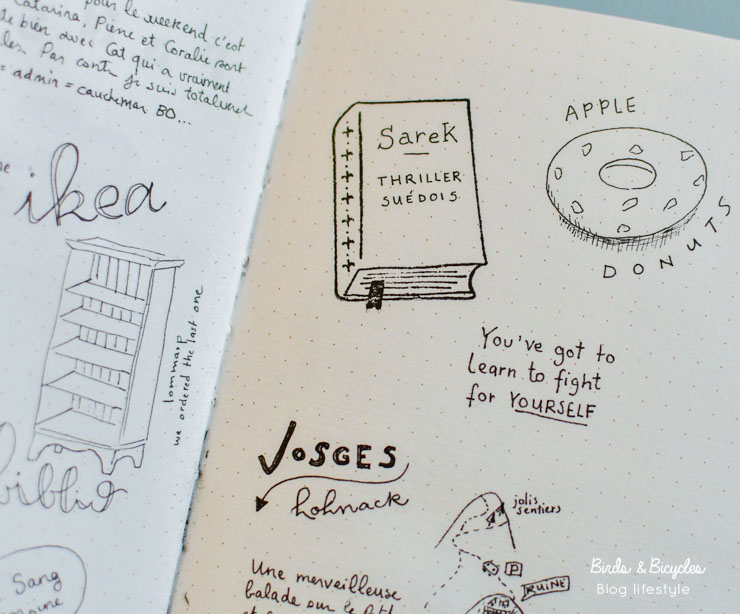 pour le weekend c'est
Catarina, Pierre et Coralie sont
te bien avec Cat qui a vraiment
les. Par contre je suis totalement
= admin = cauchemar BO...
ikea
lommarp
we ordered the last one
biblio
Sang
Sarek
THRILLER
SUÉDOIS
APPLE
DONUTS
You've got to
learn to fight
for YOURSELF
VOSGES
hohnack
jolis
sentiers
P
RUINE
Une merveilleuse
balade sur le Petit
Birds & Bicycles
Blog lifestyle